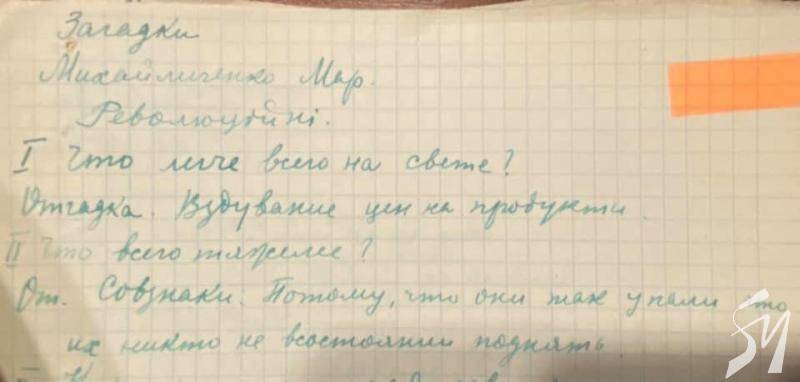 Загадки
Михайличенко Мар.
Революційні.
I Что легче всего на свете?
Отгадка. Вздувание цен на продукти.
II Что всего тяжелее?
От. Совзнаки. Потому, что они так упали что
их никто не всостоянии поднять
SM